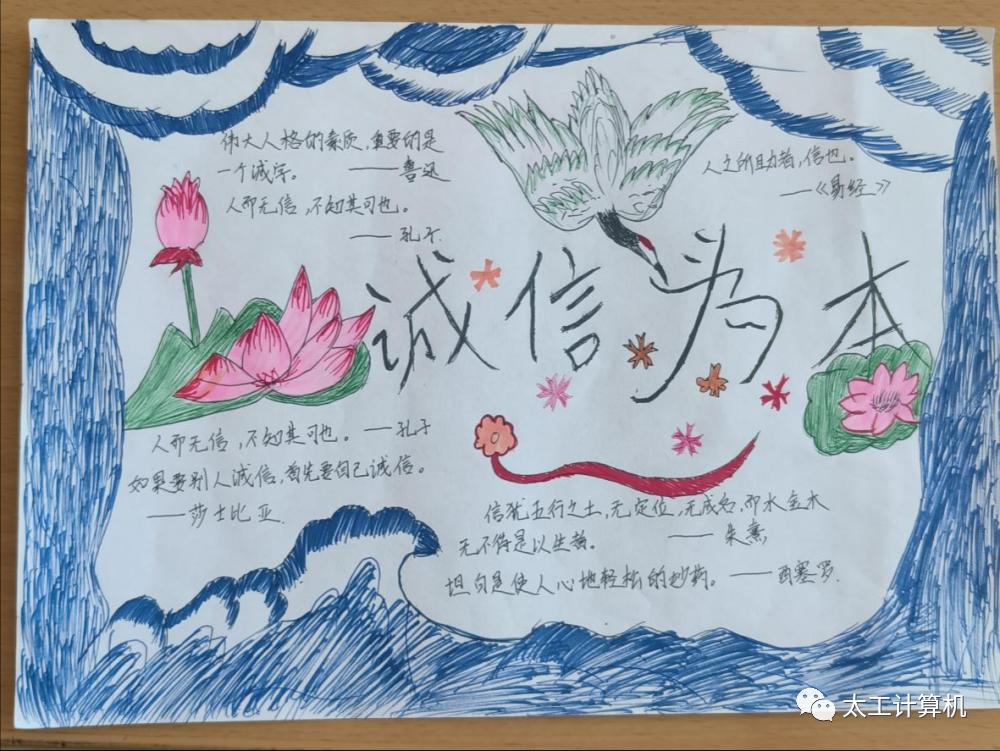 伟大人格的素质，重要的是
一个诚字。 ——鲁迅
人而无信，不知其可也。
——孔子.
人之所助者，信也。
——《易经》
诚信为本
人而无信，不知其可也。——孔子
如果要别人诚信，首先要自己诚信。
——莎士比亚.
信犹五行之土，无定位，无成名，而水金木
无不待是以生者。 ——朱熹
坦白是使人心地轻松的妙药。——西塞罗.
太工计算机